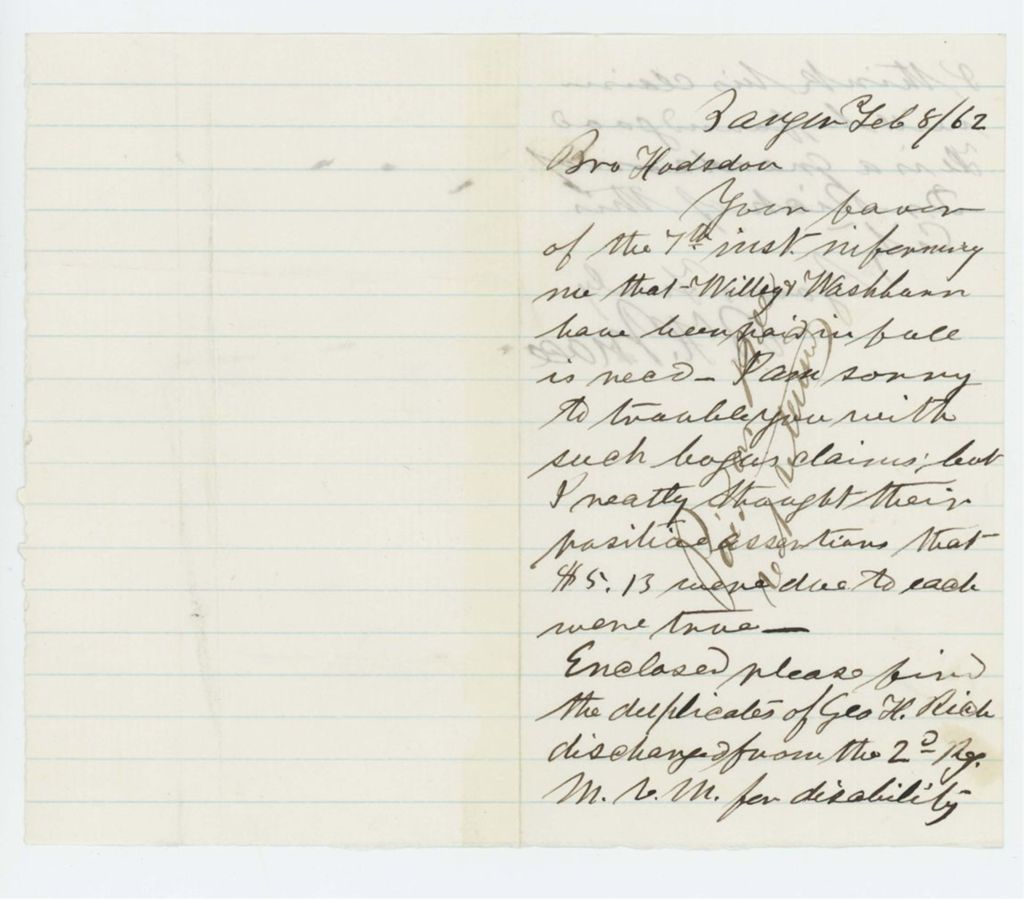 Bangor Feb 8/62
Bro Hodsdon
Your favor
of the 7th inst. informing
me that Willey & Washburn
have been paid in full
is recd - I am sorry
to trouble you with
such bogus claims, but
I really thought their
positive assertions that
$5.13 were due to each
were true—
Enclosed please find
the duplicates of Geo H. Rich
discharged from the 2d Rg.
M. V. M. for disability